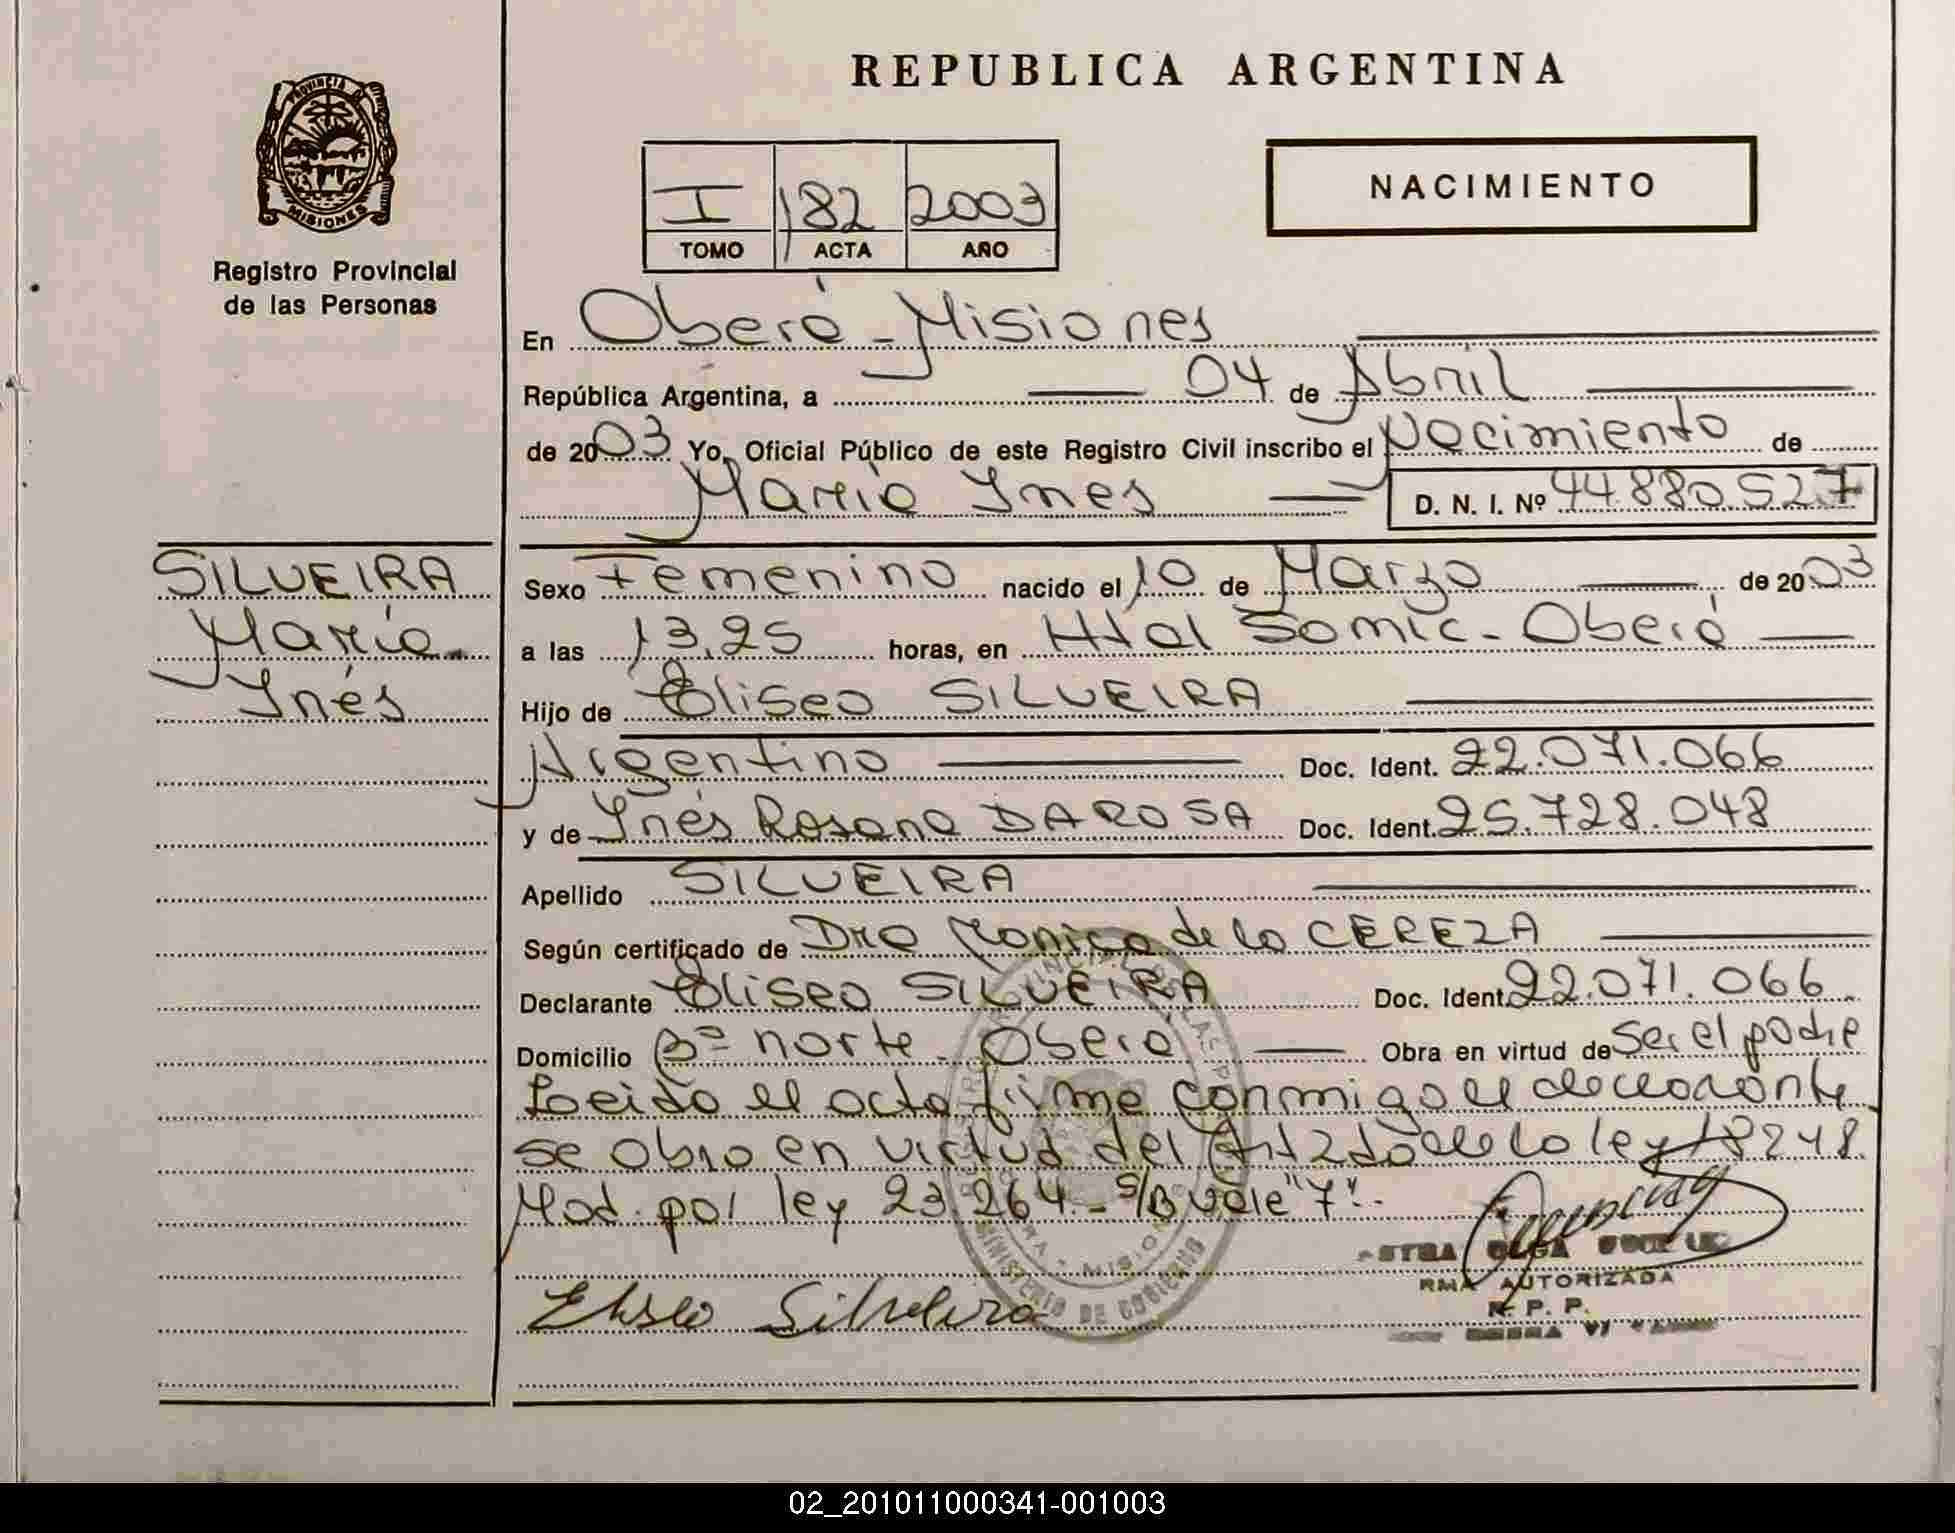 REPUBLICA ARGENTINA
PROVINCIA DE
MISIONES
Registro Provincial
de las Personas
NACIMIENTO
I 182 2003
TOMO ACTA AÑO
En Oberá - Misiones
República Argentina, a 04 de Abril
de 2003 Yo, Oficial Público de este Registro Civil inscribo el Nacimiento de
María Ines D. N. I. Nº 44.880.527
SILVEIRA
María
Inés
Sexo Femenino nacido el 10 de Marzo de 2003
a las 13,25 horas, en Htal Samic - Oberá
Hijo de Eliseo SILVEIRA
Argentino Doc. Ident. 22.071.066
y de Inés Rosana DAROSA Doc. Ident. 25.728.048
Apellido SILVEIRA
Según certificado de Dra Monica de la CEREZA
Declarante Eliseo SILVEIRA Doc. Ident. 22.071.066
Domicilio Bº norte - Oberá Obra en virtud de ser el padre
Leido el acta firma conmigo el declarante
se obro en virtud del Art 2do de la ley 18248
Mod. por ley 23 264 - S/B vale "7".-
Eliseo Silveira
OLGA
AUTORIZADA
R. P. P.
MINISTERIO DE GOBIERNO
02_201011000341-001003